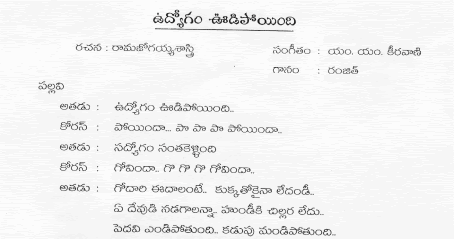 ఉద్యోగం ఊడిపోయింది
రచన : రామజోగయ్యశాస్త్రి సంగీతం : యం. యం. కీరవాణి
గానం : రంజిత్
పల్లవి
అతడు : ఉద్యోగం ఊడిపోయింది..
కోరస్ : పోయిందా... పా పా పా పోయిందా..
అతడు : సద్యోగం సంతకెళ్ళింది
కోరస్ : గోవిందా.. గొ గొ గొ గోవిందా..
అతడు : గోదారి ఈదాలంటే.. కుక్కతోకైనా లేదండీ..
ఏ దేవుడి నడగాలన్నా.. హుండీకి చిల్లర లేదు..
పెదవి ఎండిపోతుంది.. కడుపు మండిపోతుంది..